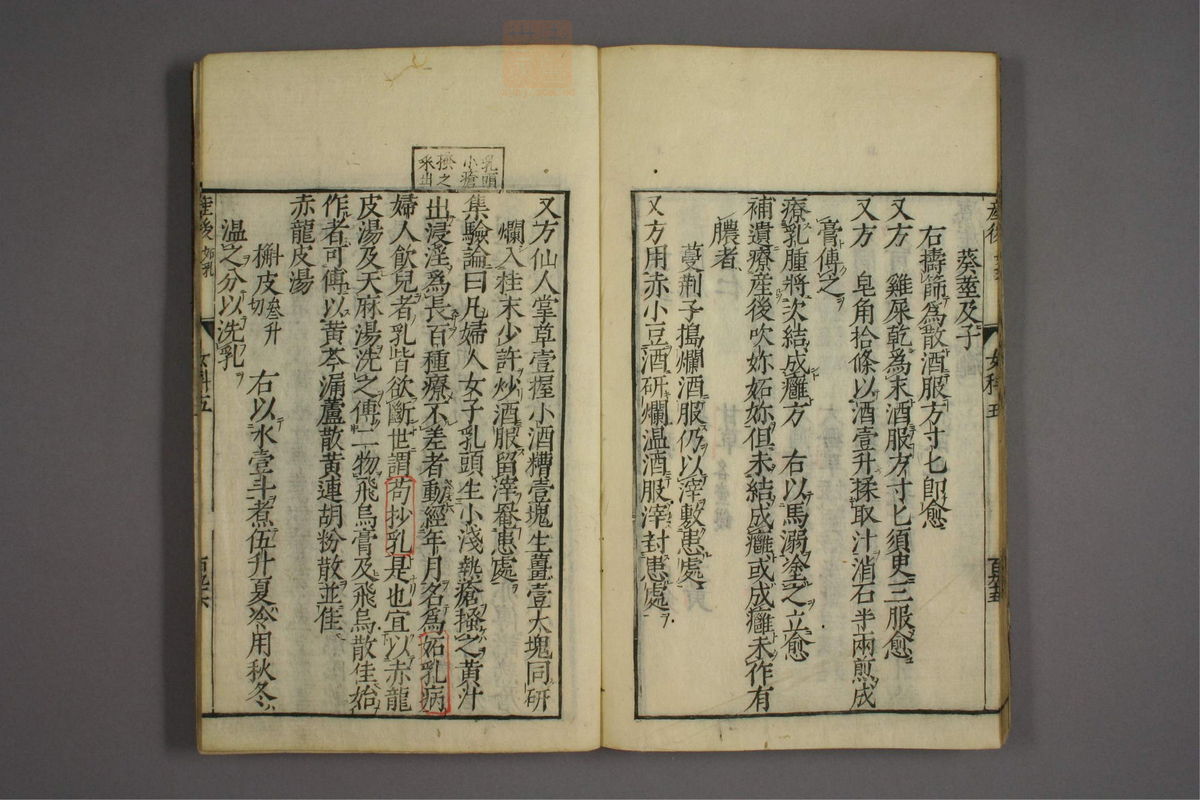 葵莖及子
右擣篩爲散酒服方寸匕卽愈
又方　雞屎乾爲末酒服方寸匕須臾三服愈
又方　皂角拾條以酒壹升揉取汁消石半兩煎成
膏傅之
療乳腫將次結成癰方　右以馬溺塗之立愈
補遺療産後吹妳妬妳但未結成癰或成癰未作有
膿者
蔓荆子搗爛酒服仍以滓敷患處
又方用赤小豆酒研爛温酒服滓封患處
乳頭
小瘡
搔之
釆出
又方仙人掌草壹握小酒糟壹塊生薑壹大塊同研
爛入桂末少許炒酒服留滓罨患處
集驗論曰凡婦人女子乳頭生小淺熱瘡搔之黄汁
出浸淫爲長百種療不差者動經年月名爲妬乳病
婦人飲兒者乳皆欲斷世謂苟抄乳是也宜以赤龍
皮湯及天麻湯洗之傅二物飛烏膏及飛烏散佳始
作者可傅以黄芩漏蘆散黄連胡粉散並佳
赤龍皮湯
槲皮叁升切　右以水壹斗煮伍升夏冷用秋冬
温之分以洗乳
産後
女科五